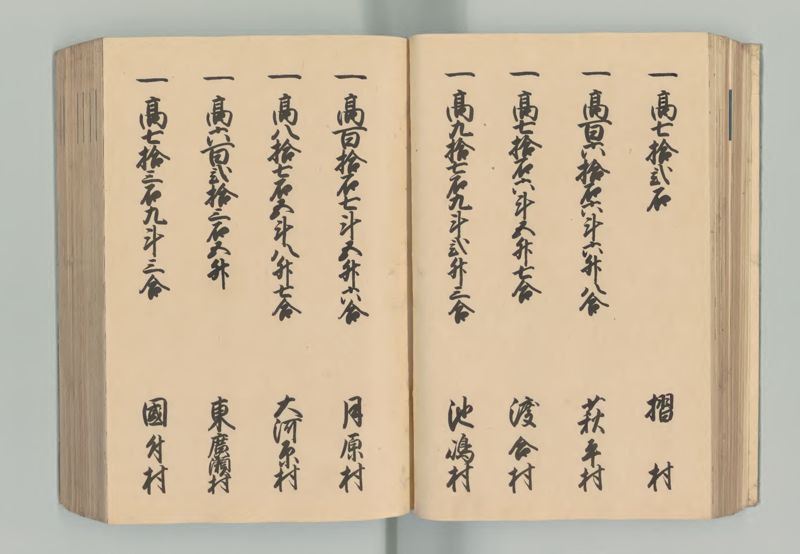 一 高七拾弐石 摺村
一 高百六拾石六斗六升八合 萩平村
一 高七拾石八斗五升七合 渡合村
一 高九拾七石九斗弐升三合 池嶋村
一 高百拾石七斗五升六合 月原村
一 高八拾七石五斗八升七合 大河原村
一 高六百弐拾三石五升 東廣瀬村
一 高七拾三石九斗三合 國付村